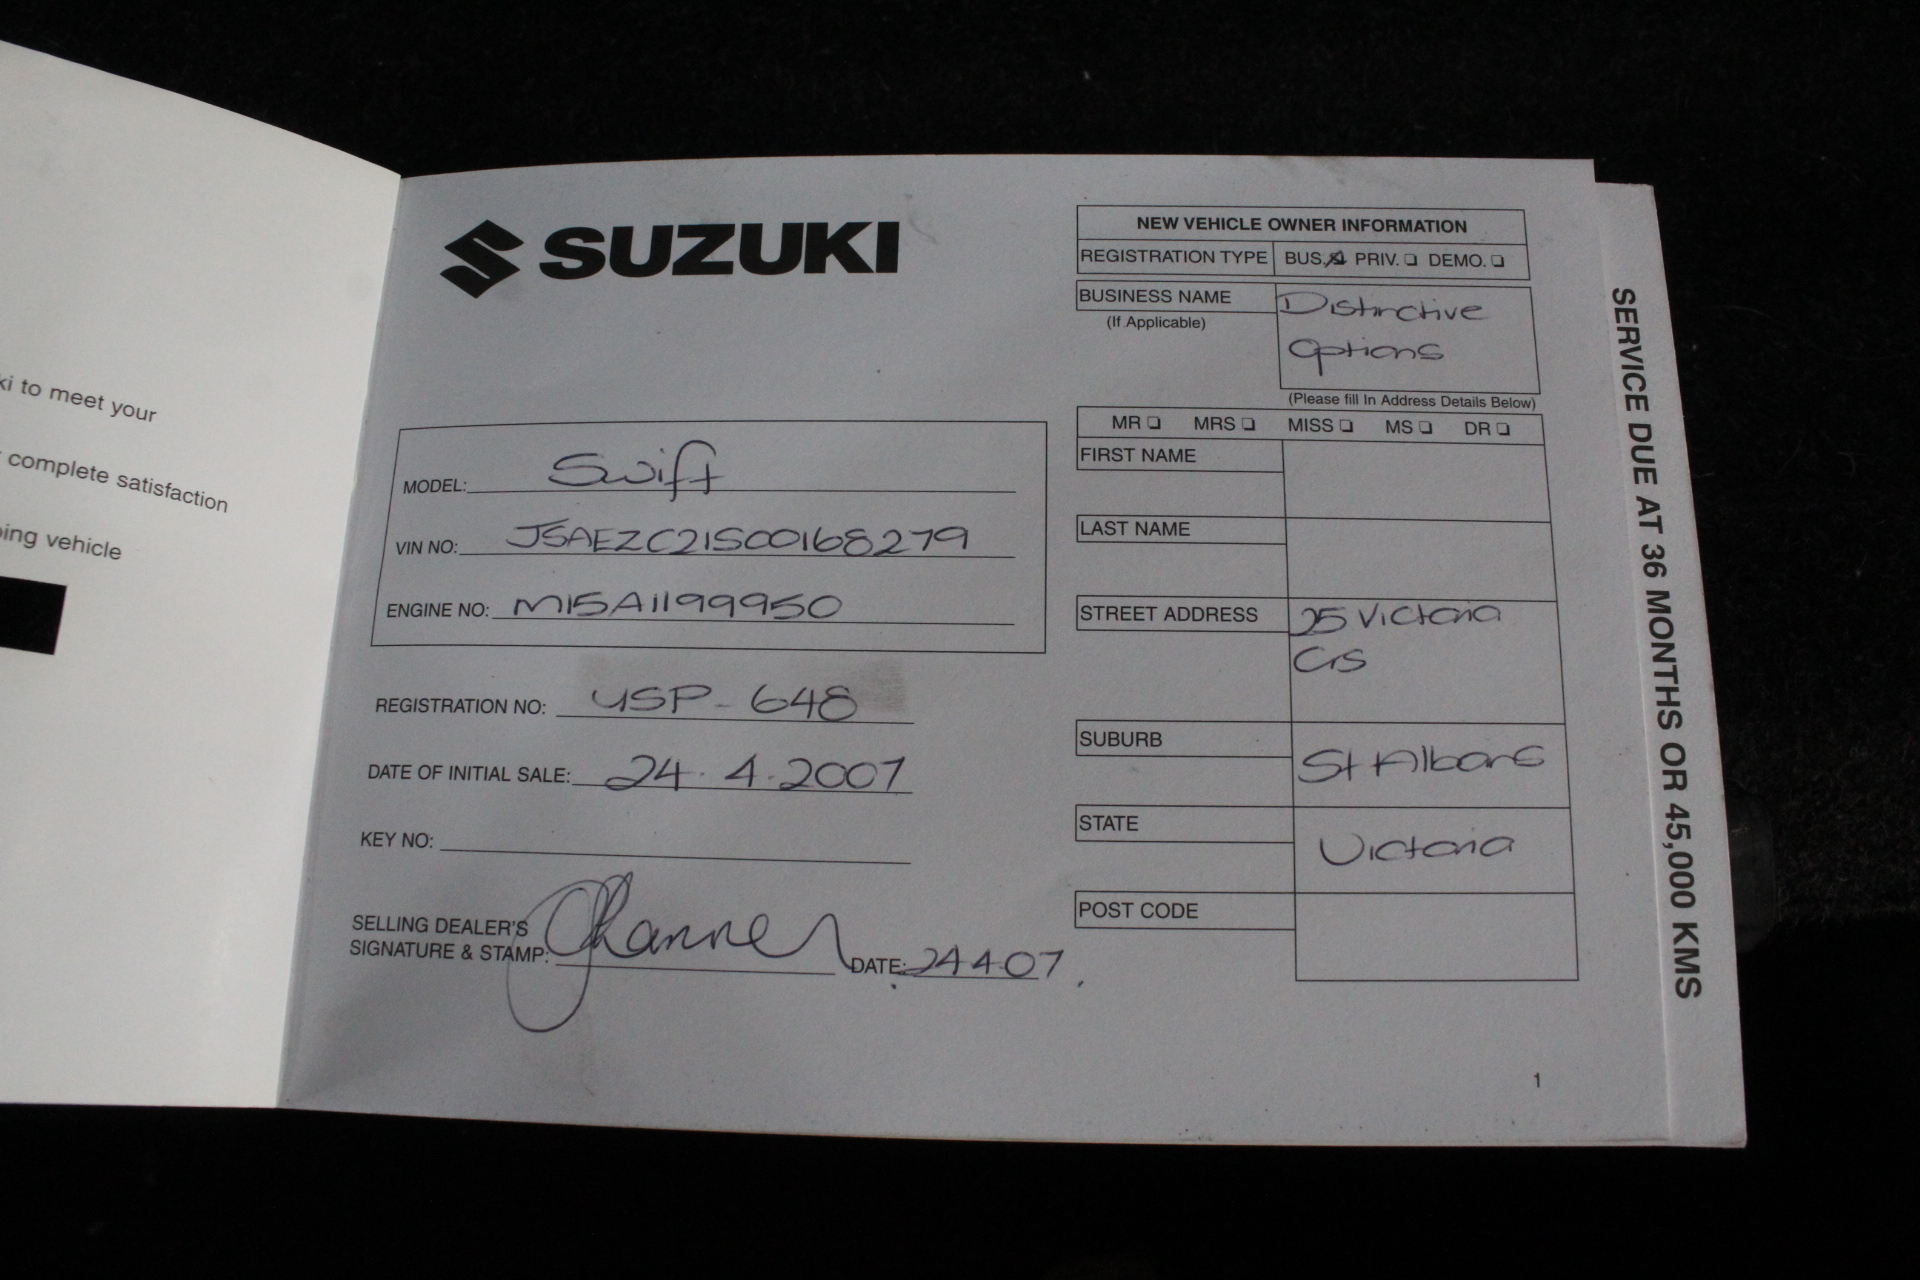 ki to meet your
complete satisfaction
ping vehicle
SUZUKI
MODEL: Swift
VIN NO: JSAEZC21S00168279
ENGINE NO: M15A1199950
REGISTRATION NO: USP-648
DATE OF INITIAL SALE: 24.4.2007
KEY NO:
SELLING DEALER'S
SIGNATURE & STAMP:
DATE: 24407
NEW VEHICLE OWNER INFORMATION
REGISTRATION TYPE BUS. PRIV. DEMO.
BUSINESS NAME Distinctive
(If Applicable)
Options
(Please fill In Address Details Below)
MR MRS MISS MS DR
FIRST NAME
LAST NAME
STREET ADDRESS 25 Victoria
Crs
SUBURB St Albans
STATE Victoria
POST CODE
1
SERVICE DUE AT 36 MONTHS OR 45,000 KMS